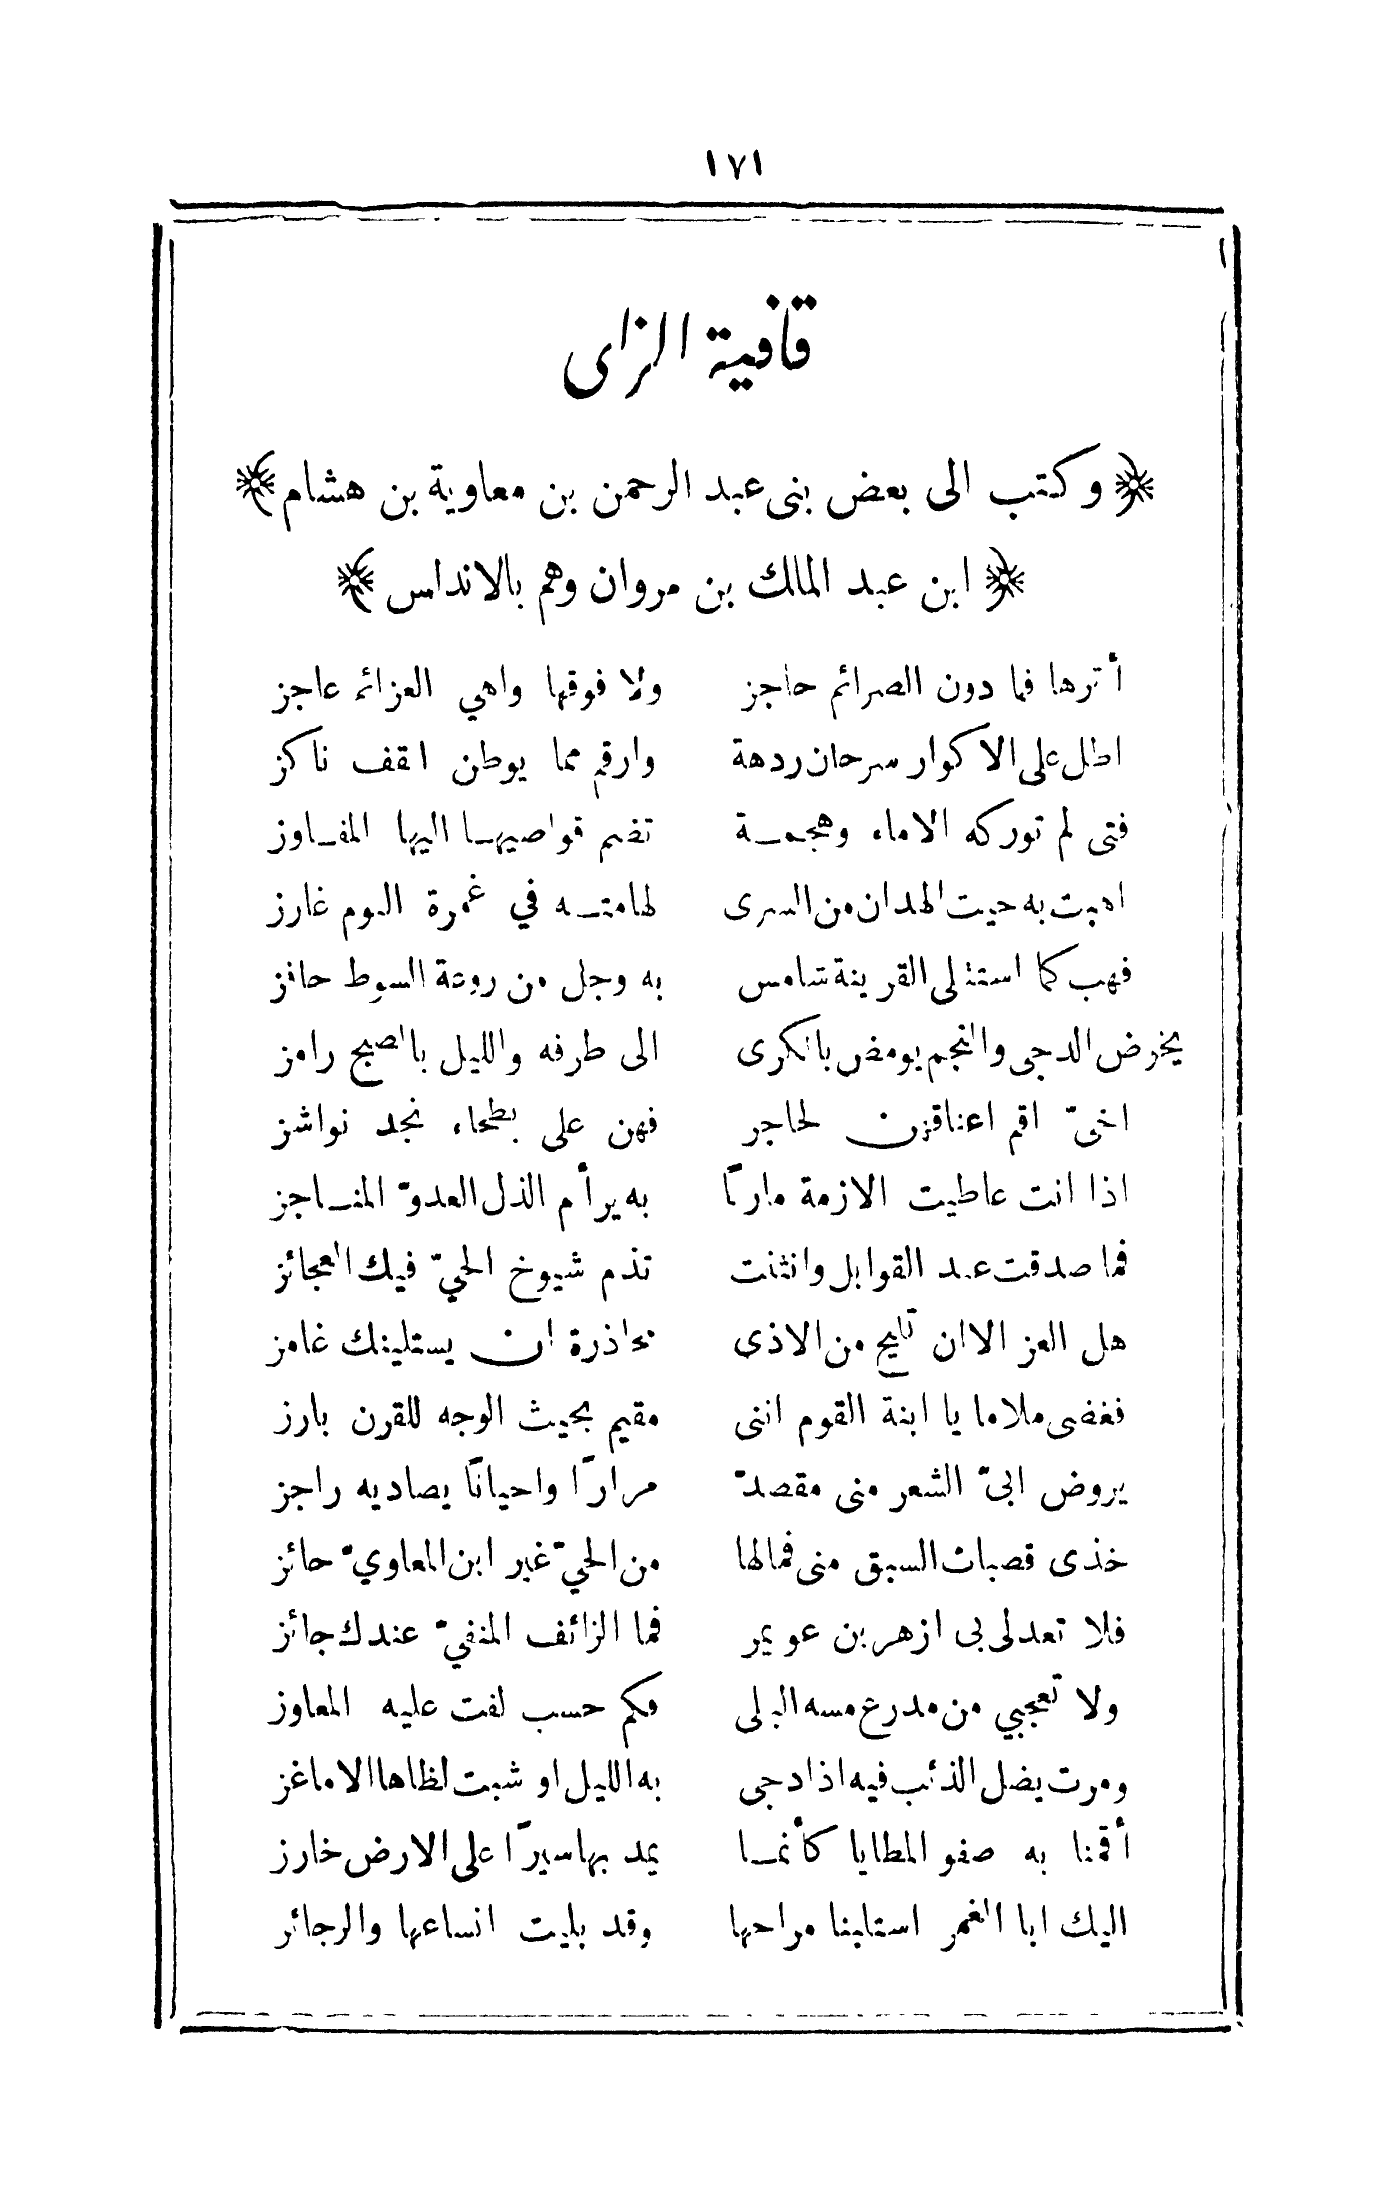 ١٧١
قافية الزاى
﴿ وكتب الى بعض بنى عبد الرحمن بن معاوية بن هشام ﴾
﴿ ابن عبد الملك بن مروان وهم بالاندلس ﴾
أثرها فما دون الصرائم حاجز ولا فوقها واهي العزائم عاجز
اطل على الاكوار سرحان ردهة وارقم مما يوطن القف ناكز
فتى لم توركه الاماء وهجمة تضم قواصيها اليها المفاوز
اهبت به حيت الهدان من السرى لهامته في غمرة النوم غارز
فهب كما استتلى القرينة شامس به وجل من روعة السوط حافز
يخرض الدجى والنجم يومض بالكرى الى طرفه والليل بالصبح رامز
اخىّ اقم اعناقهن لحاجر فهن على بطحاء نجد نواشز
اذا انت عاطيت الازمة ماركًا به يرأم الذل العدوّ المناجز
فما صدقت عبد القوابل وانثنت تذم شيوخ الحيّ فيك العجائز
هل العز الا ان تليح من الاذى محاذرة ان يستلينك غامز
فغضى ملاما يا ابنة القوم اننى مقيم بحيث الوجه للقرن بارز
يروض ابىّ الشعر منى مقصدّ مرارًا واحيانًا يصاديه راجز
خذى قصبات السبق منى فمالها من الحيّ غير ابن المعاويّ حائز
فلا تعدلى بى ازهر بن عويمر فما الزائف المنفيّ عندك جائز
ولا تعجبي من مدرع مسه البلى فكم حسب لفت عليه المعاوز
ومرت يضل الذئب فيه اذا دجى به الليل او شبت لظاها الاماعز
أقمنا به صفو المطايا كأنما يمد بها سيرًا على الارض خارز
اليك ابا الغمر استلبنا مراحها وقد بليت انساعها والرجائز